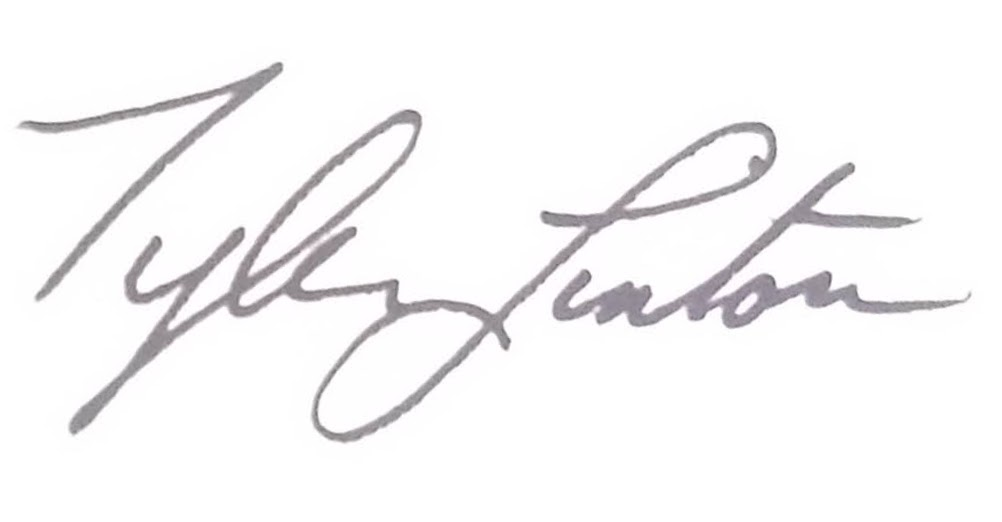 Tyler Linton